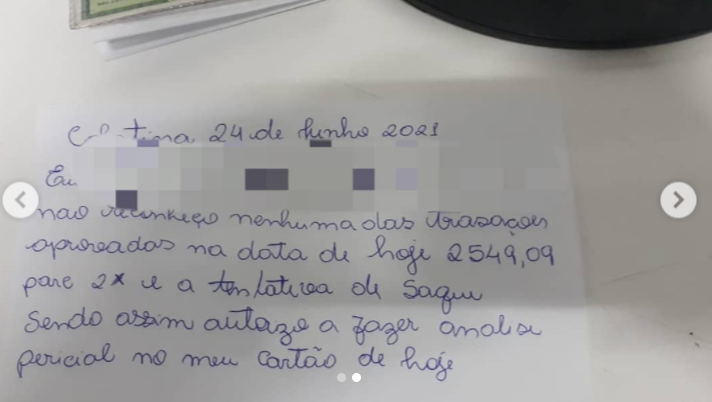 24 de Junho 2021
Eu
não reconheço nenhuma das trasações
aprovadas na data de hoje 2549,09
parc 2x e a tentativa de saque
Sendo assim autorizo a fazer analise
pericial no meu cartão de hoje